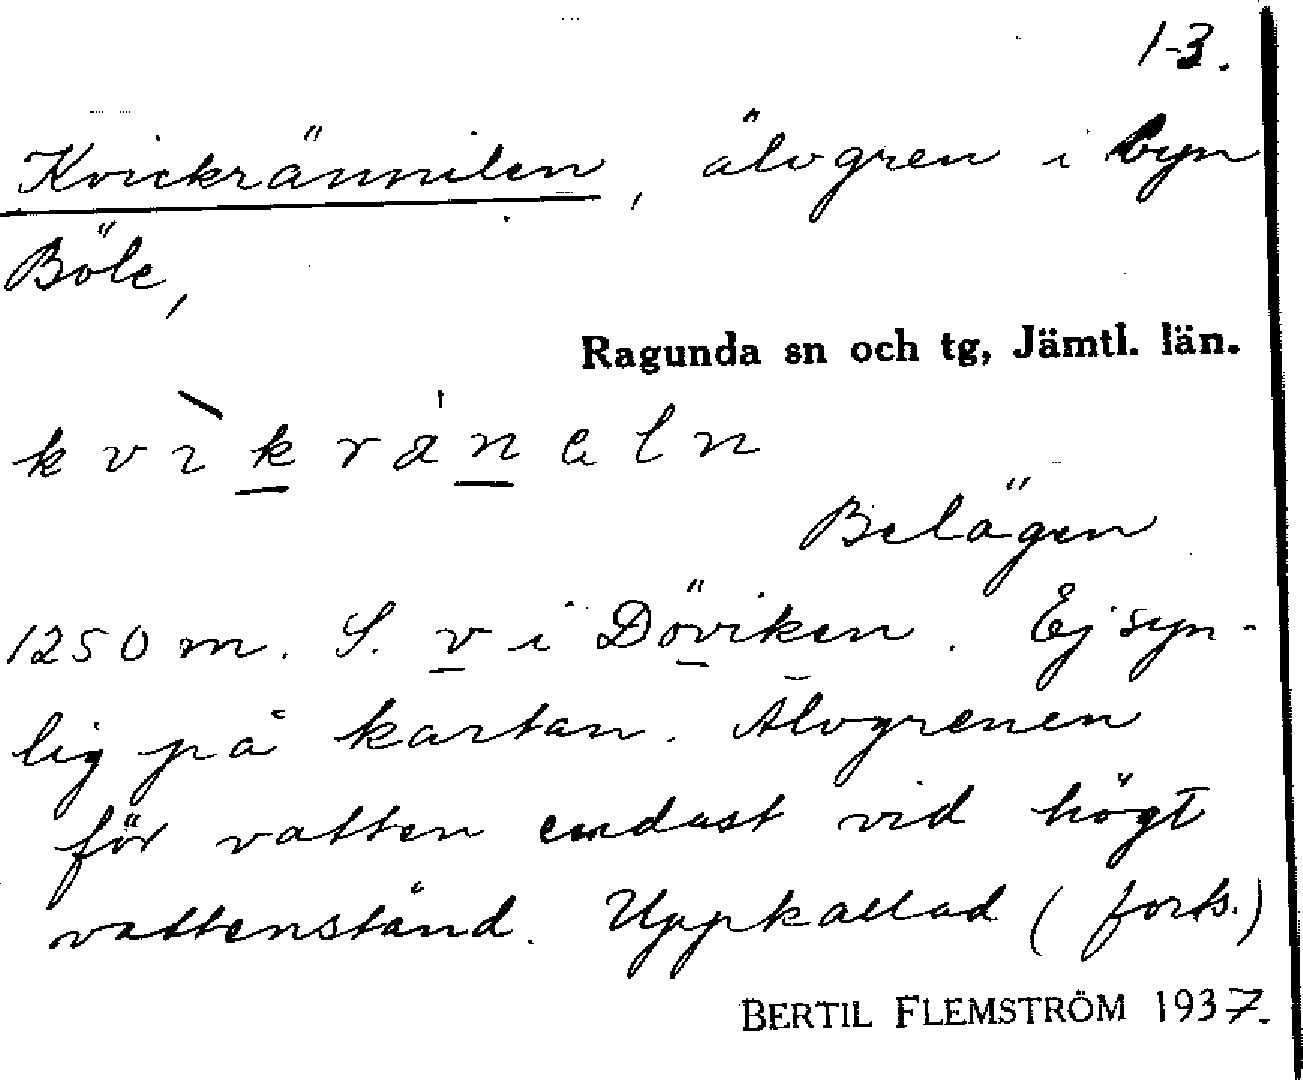 1-3.
Kvickrännilen, älvgren i byn
Böle,
Ragunda sn och tg, Jämtl. län.
Belägen
1250 m. S. v i Döviken. Ej syn-
lig på kartan. Älvgrenen
för vatten endast vid högt
vattenstånd. Uppkallad (forts.)
BERTIL FLEMSTRÖM 1937.